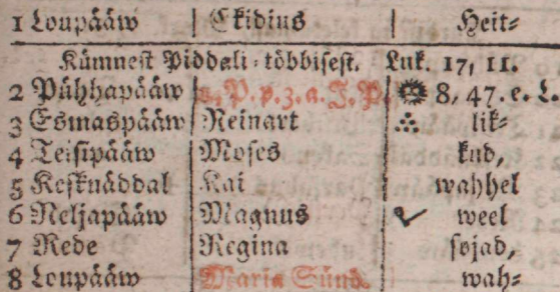 1 Loupääw Ekidius Heit⸗
Kümnest Piddali⸗többisest. Luk. 17, 11.
2 Pühhapääw 13. P. p. 3. a. J. P. 8, 47. e. L.
3 Esmaspääw Reinart lik⸗
4 Teisipääw Moses kud,
5 Kesknäddal Kai wahhel
6 Neljapääw Magnus weel
7 Rede Regina sojad,
8 Loupääw Maria Sünd. wah⸗